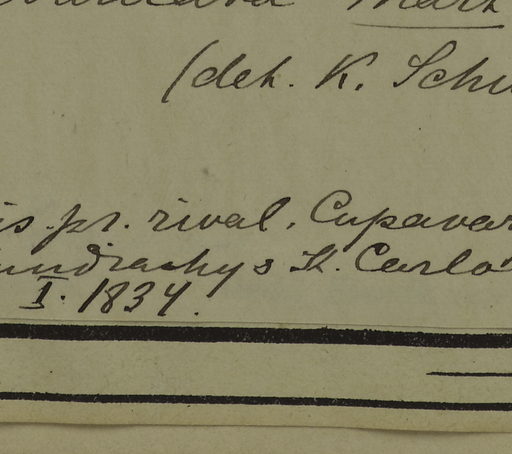 Mart
(det. K. Schu
is. pr. rival. Cupavar
undiachys St. Carlo
I. 1834.